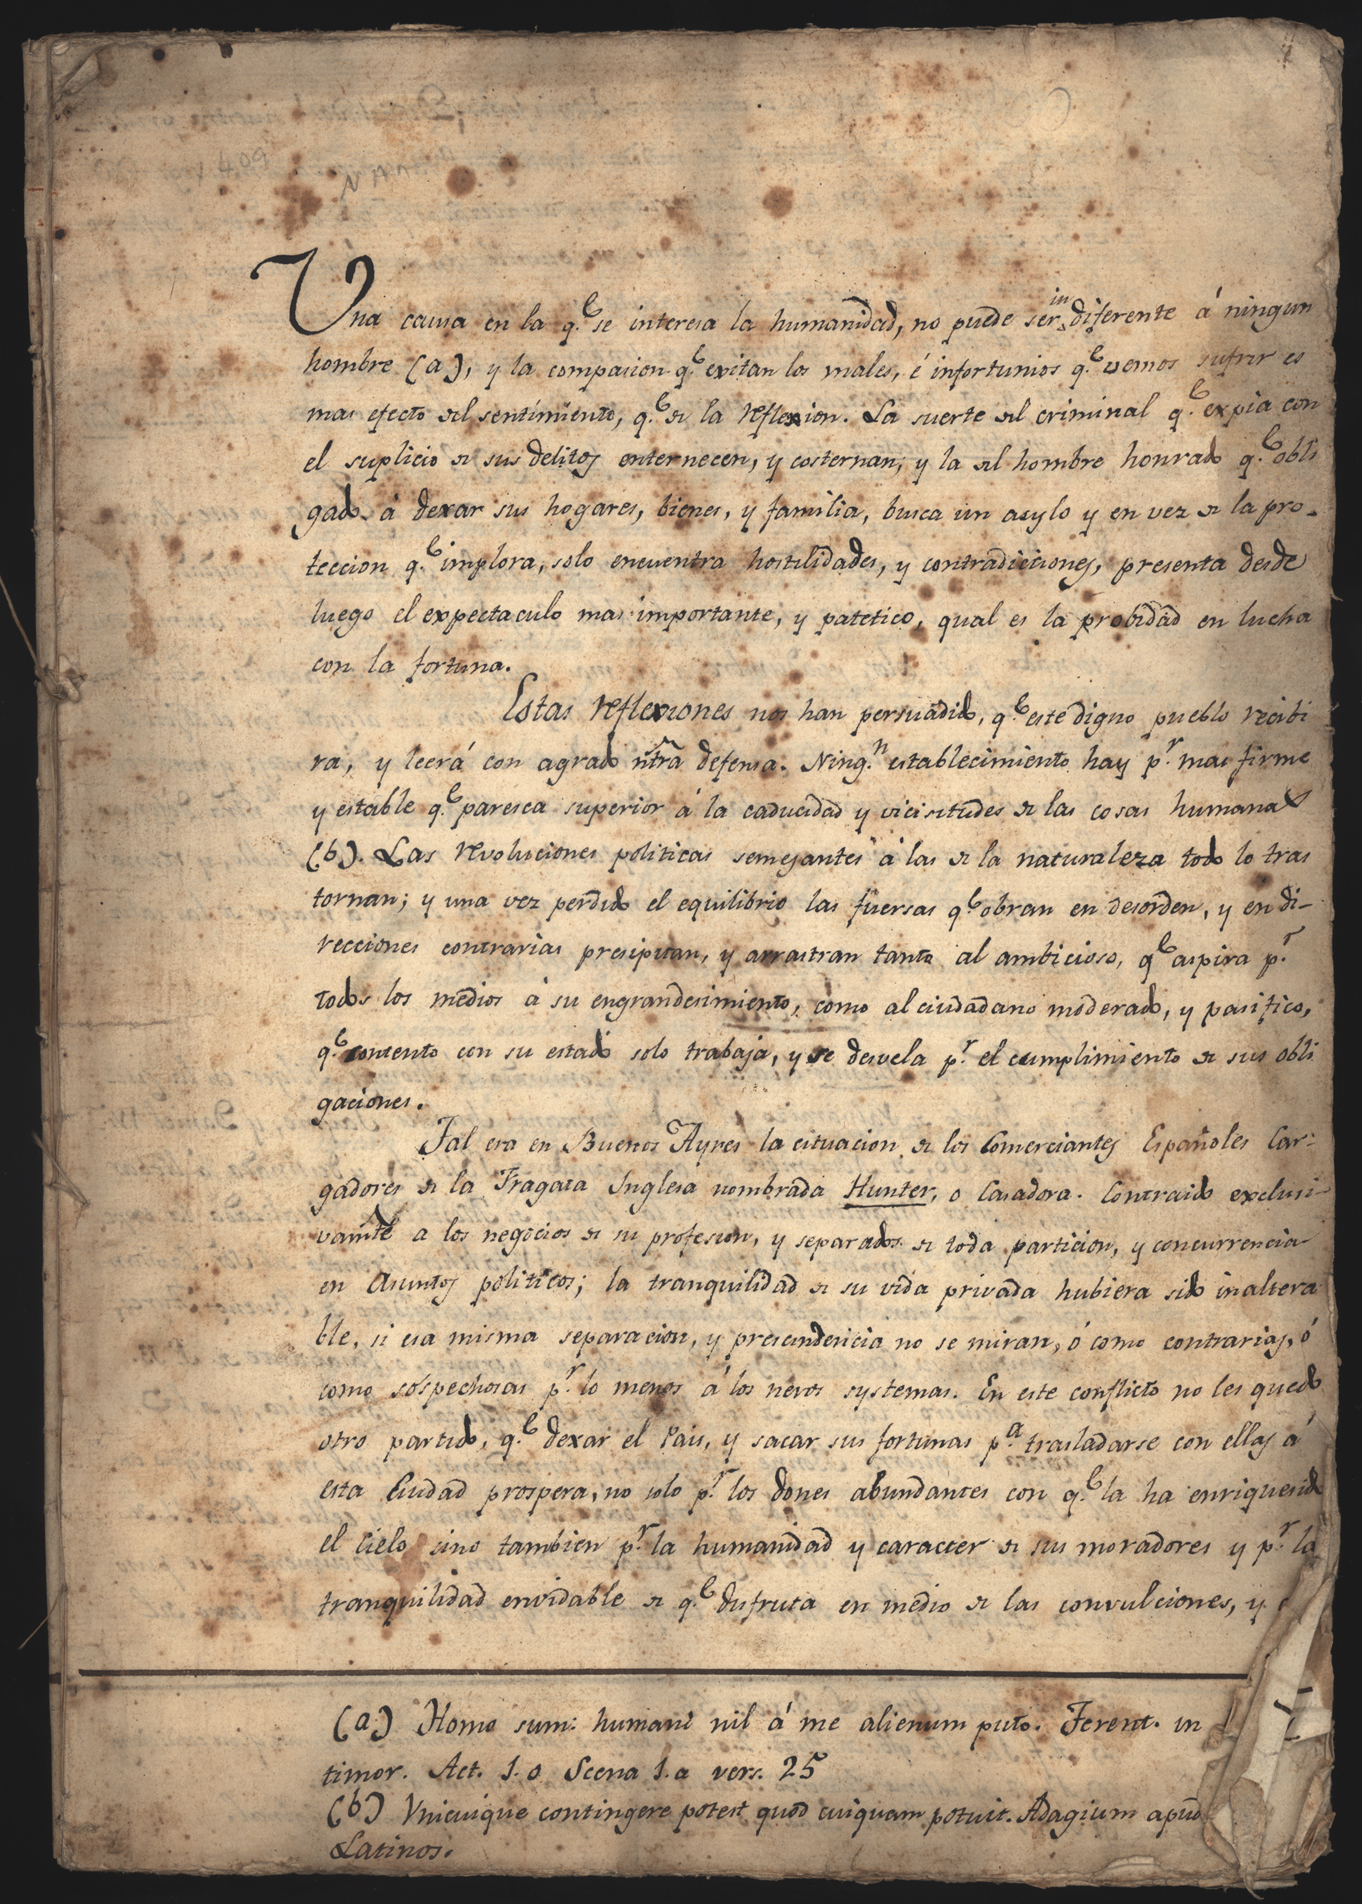 Una causa en la q.e se interesa la humanidad, no puede ser indiferente á ningun
hombre (a), y la compasion q.e exitan los males, é infortunios q.e vemos sufrir es
mas efecto del sentimiento, q.e de la reflexion. La suerte del criminal q.e expia con
el suplicio de sus delitos enternecen, y costernan; y la del hombre honrado q.e obli
gado á dexar sus hogares, bienes, y familia, busca un asylo y en vez de la pro-
teccion q.e implora, solo encuentra hostilidades, y contradiciones, presenta desde
luego el expectaculo mas importante, y patetico, qual es la probidad en lucha
con la fortuna.
Estas reflexiones nos han persuadido, q.e este digno pueblo recibi
ra, y leerá con agrado ntra defensa. Ning.n establecimiento hay p.r mas firme
y estable q.e paresca superior á la caducidad y vicisitudes de las cosas humanas
(b). Las revoluciones politicas semejantes á las de la naturaleza todo lo tras
tornan; y una vez perdido el equilibrio las fuersas q.e obran en desorden, y en di-
recciones contrarias presipitan, y arrastran tanto al ambicioso, q.e aspira p.r
todos los medios á su engrandesimiento, como al ciudadano moderado, y pasifico,
q.e contento con su estado solo trabaja, y se desvela p.r el cumplimiento de sus obli
gaciones.
Tal era en Buenos Ayres la cituacion de los Comerciantes Españoles Car-
gadores de la Fragata Inglesa nombrada Hunter, o Casadora. Contraido exclusi-
vamte a los negocios de su profesion, y separados de toda particion, y concurrencia
en Asuntos politicos; la tranquilidad de su vida privada hubiera sido inaltera
ble, si esa misma separacion, y prescindencia no se miran, ó como contrarias, ó
como sospechosas p.r lo menos á los nevos systemas. En este conflicto no les quedo
otro partido, q.e dexar el Pais, y sacar sus fortunas p.a trasladarse con ellas á
esta Ciudad prospera, no solo p.r los dones abundantes con q.e la ha enriquesido
el Cielo sino tambien p.r la humanidad y caracter de sus moradores y p.r la
tranquilidad envidable de q.e disfruta en medio de las convulciones, y
(a) Homo sum: humani nil á me alienum puto. Terent. in
timor. Act. 1.o Scena 1.a vers. 25
(b) Vnicuique contingere potest quod cuiquam potuit. Adagium apud
Latinos.